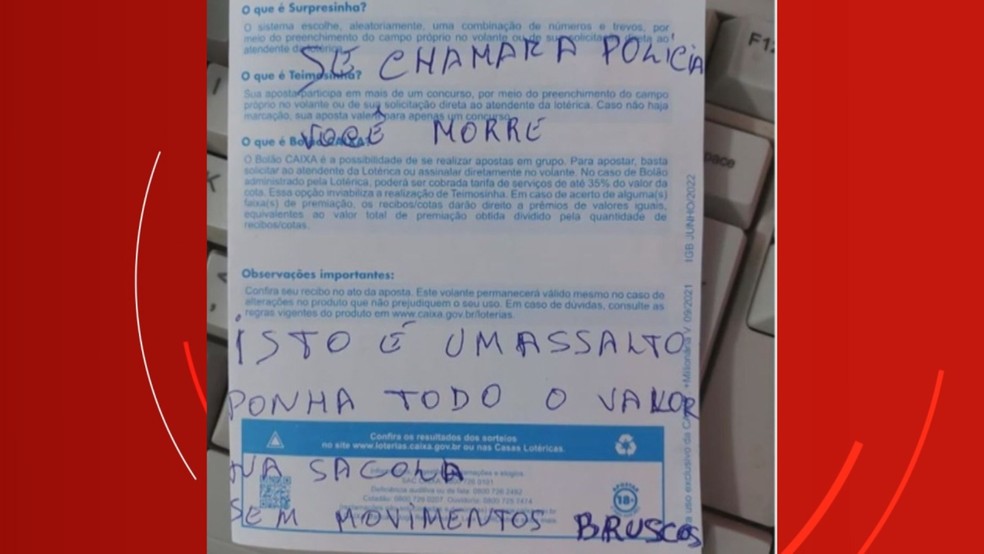 O que é Surpresinha?
O sistema escolhe, aleatoriamente, uma combinação de números e trevos, por
meio do preenchimento do campo próprio no volante ou de sua solicitação direta ao
atendente da lotérica.
SE CHAMAR A POLICIA
O que é Teimosinha?
Sua aposta participa em mais de um concurso, por meio do preenchimento do campo
próprio no volante ou de sua solicitação direta ao atendente da lotérica. Caso não haja
marcação, sua aposta valerá para apenas um concurso.
VOCÊ MORRE
O que é Bolão CAIXA?
O Bolão CAIXA é a possibilidade de se realizar apostas em grupo. Para apostar, basta
solicitar ao atendente da Lotérica ou assinalar diretamente no volante. No caso de Bolão
administrado pela Lotérica, poderá ser cobrada tarifa de serviços de até 35% do valor da
cota. Essa opção inviabiliza a realização de Teimosinha. Em caso de acerto de alguma(s)
faixa(s) de premiação, os recibos/cotas darão direito a prêmios de valores iguais,
equivalentes ao valor total de premiação obtida dividido pela quantidade de
recibos/cotas.
Observações importantes:
Confira seu recibo no ato da aposta. Este volante permanecerá válido mesmo no caso de
alterações no produto que não prejudiquem o seu uso. Em caso de dúvidas, consulte as
regras vigentes do produto em www.caixa.gov.br/loterias.
ISTO É UM ASSALTO
PONHA TODO O VALOR
Confira os resultados dos sorteios
no site www.loterias.caixa.gov.br ou nas Casas Lotéricas.
NA SACOLA
SEM MOVIMENTOS BRUSCOS
18+
+Milionária V 09/2021 IGB JUNHO/2022
F12